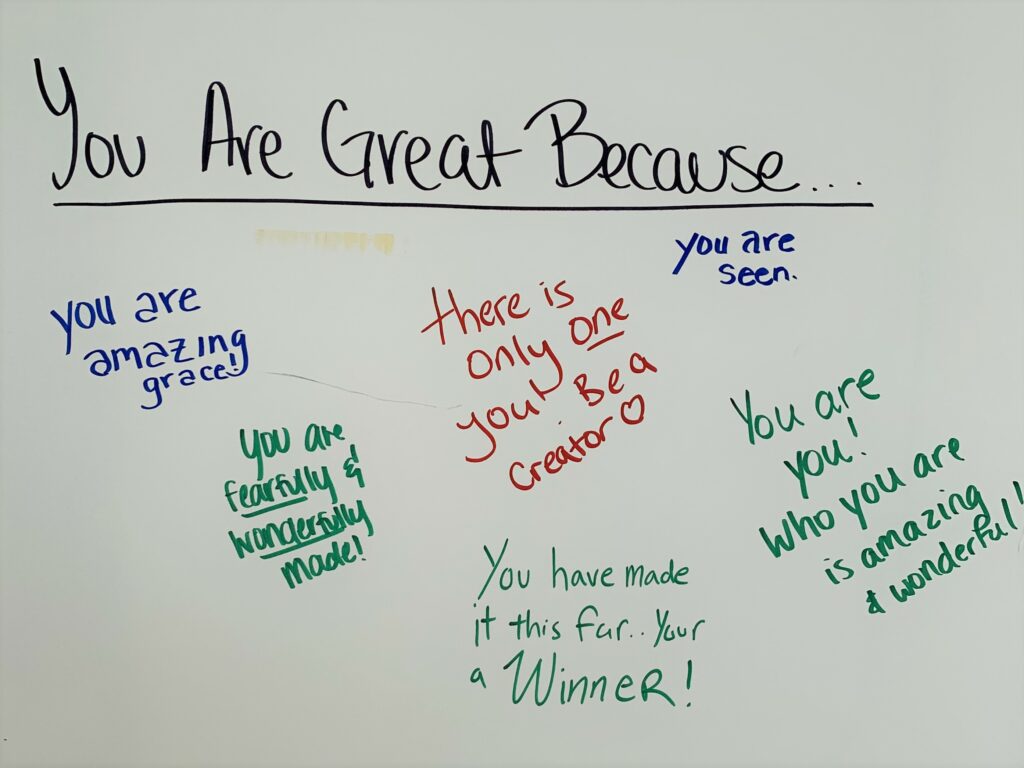 You Are Great Because...
you are
seen.
you are
amazing
grace!
there is
only one
you! Be a
creator♡
You are
you!
Who you are
is amazing
& wonderful!
you are
fearfully &
wonderfully
made!
You have made
it this far.. Your
a Winner!